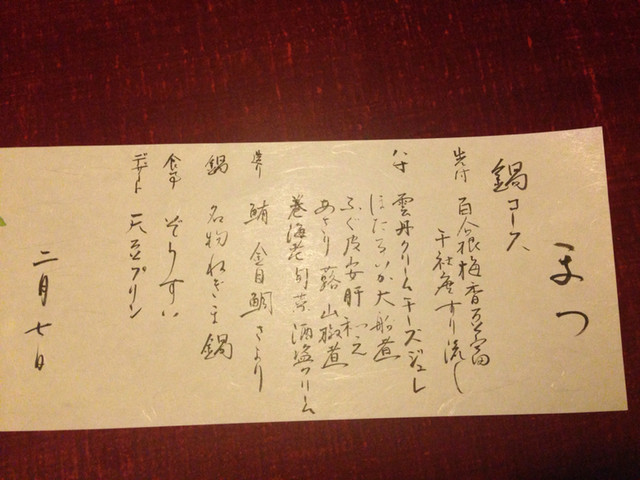 まつ
鍋コース
先付 百合根梅香豆富
干社唐すり流し
八寸 雲丹クリームチーズジュレ
ほたるいか大船煮
ふぐ皮安肝和え
あさり蕗山椒煮
巻海老旬菜酒盗クリーム
造り 鮪 金目鯛 さより
鍋 名物ねぎま鍋
食事 ぞうすい
デザート 天豆プリン
二月七日